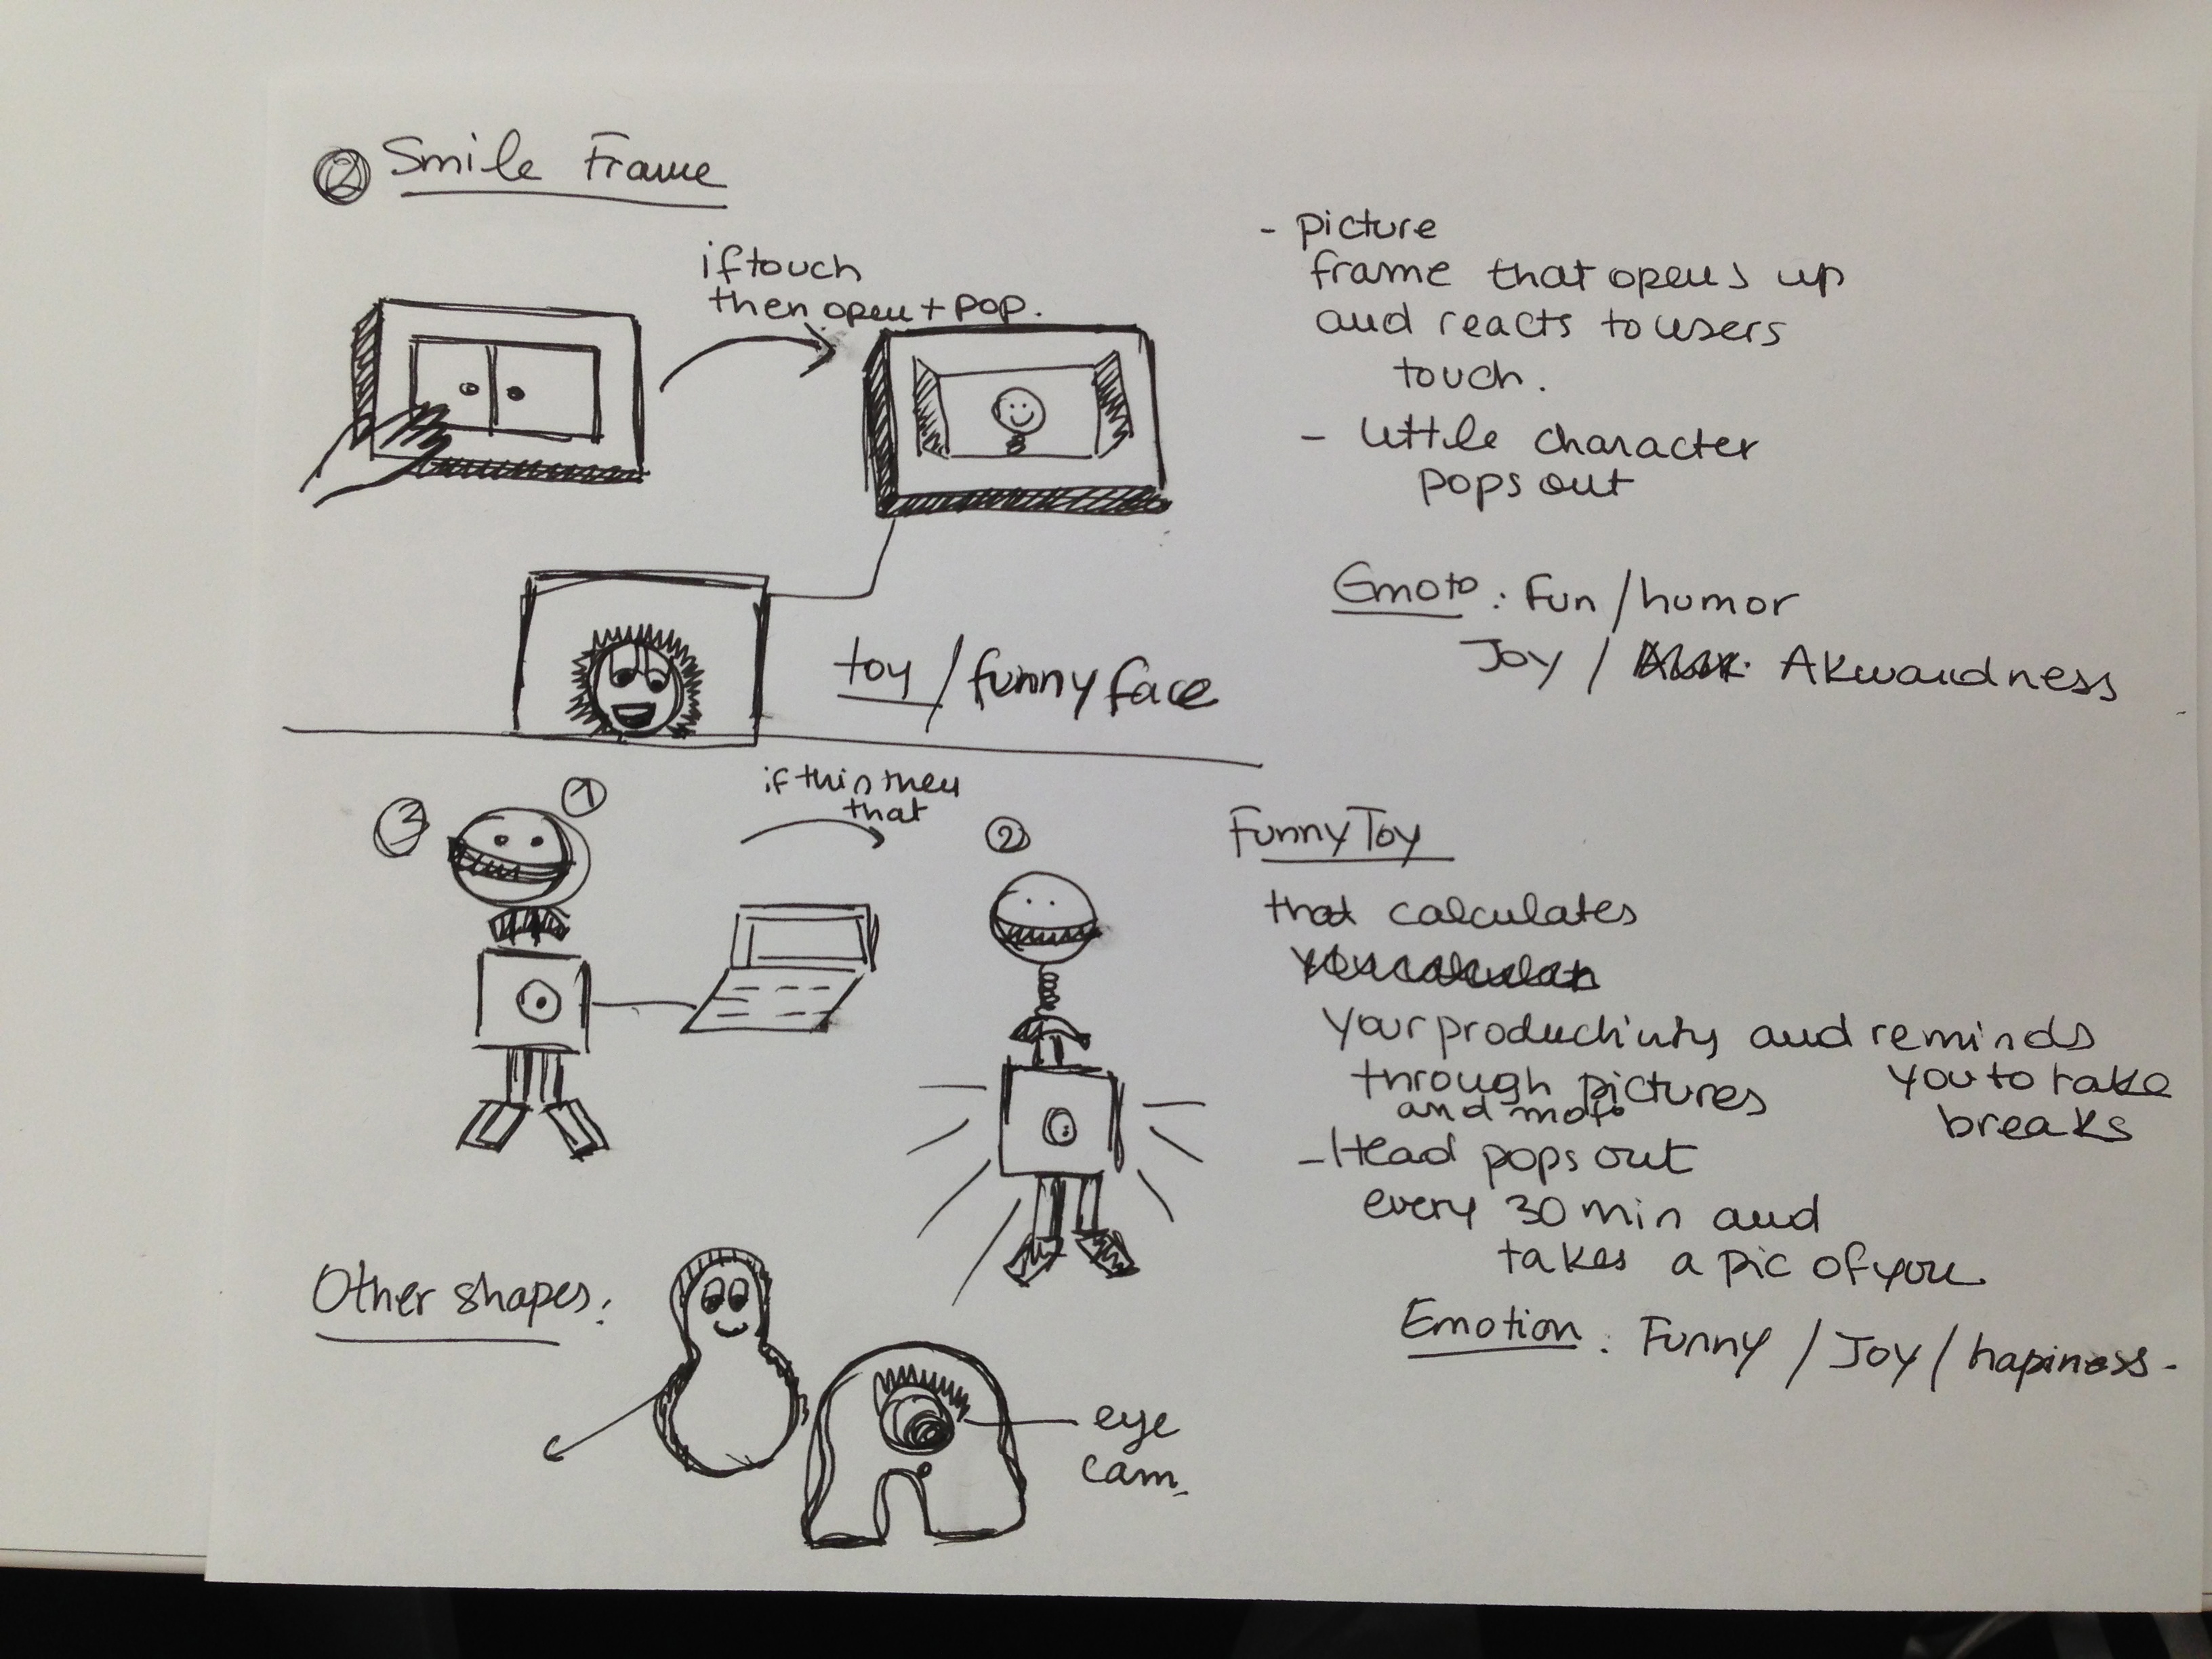 ② Smile Frame
if touch
then open + pop.
- picture
frame that opens up
and reacts to users
touch.
- little character
pops out
Emoto : Fun / humor
Joy / Akwardness
toy / funny face
③
①
if this then
that
②
Funny Toy
that calculates
your productivity and reminds
you to take
breaks
through pictures
and moto
- Head pops out
every 30 min and
takes a pic of you
Emotion : Funny / Joy / hapiness -
Other shapes :
eye
cam